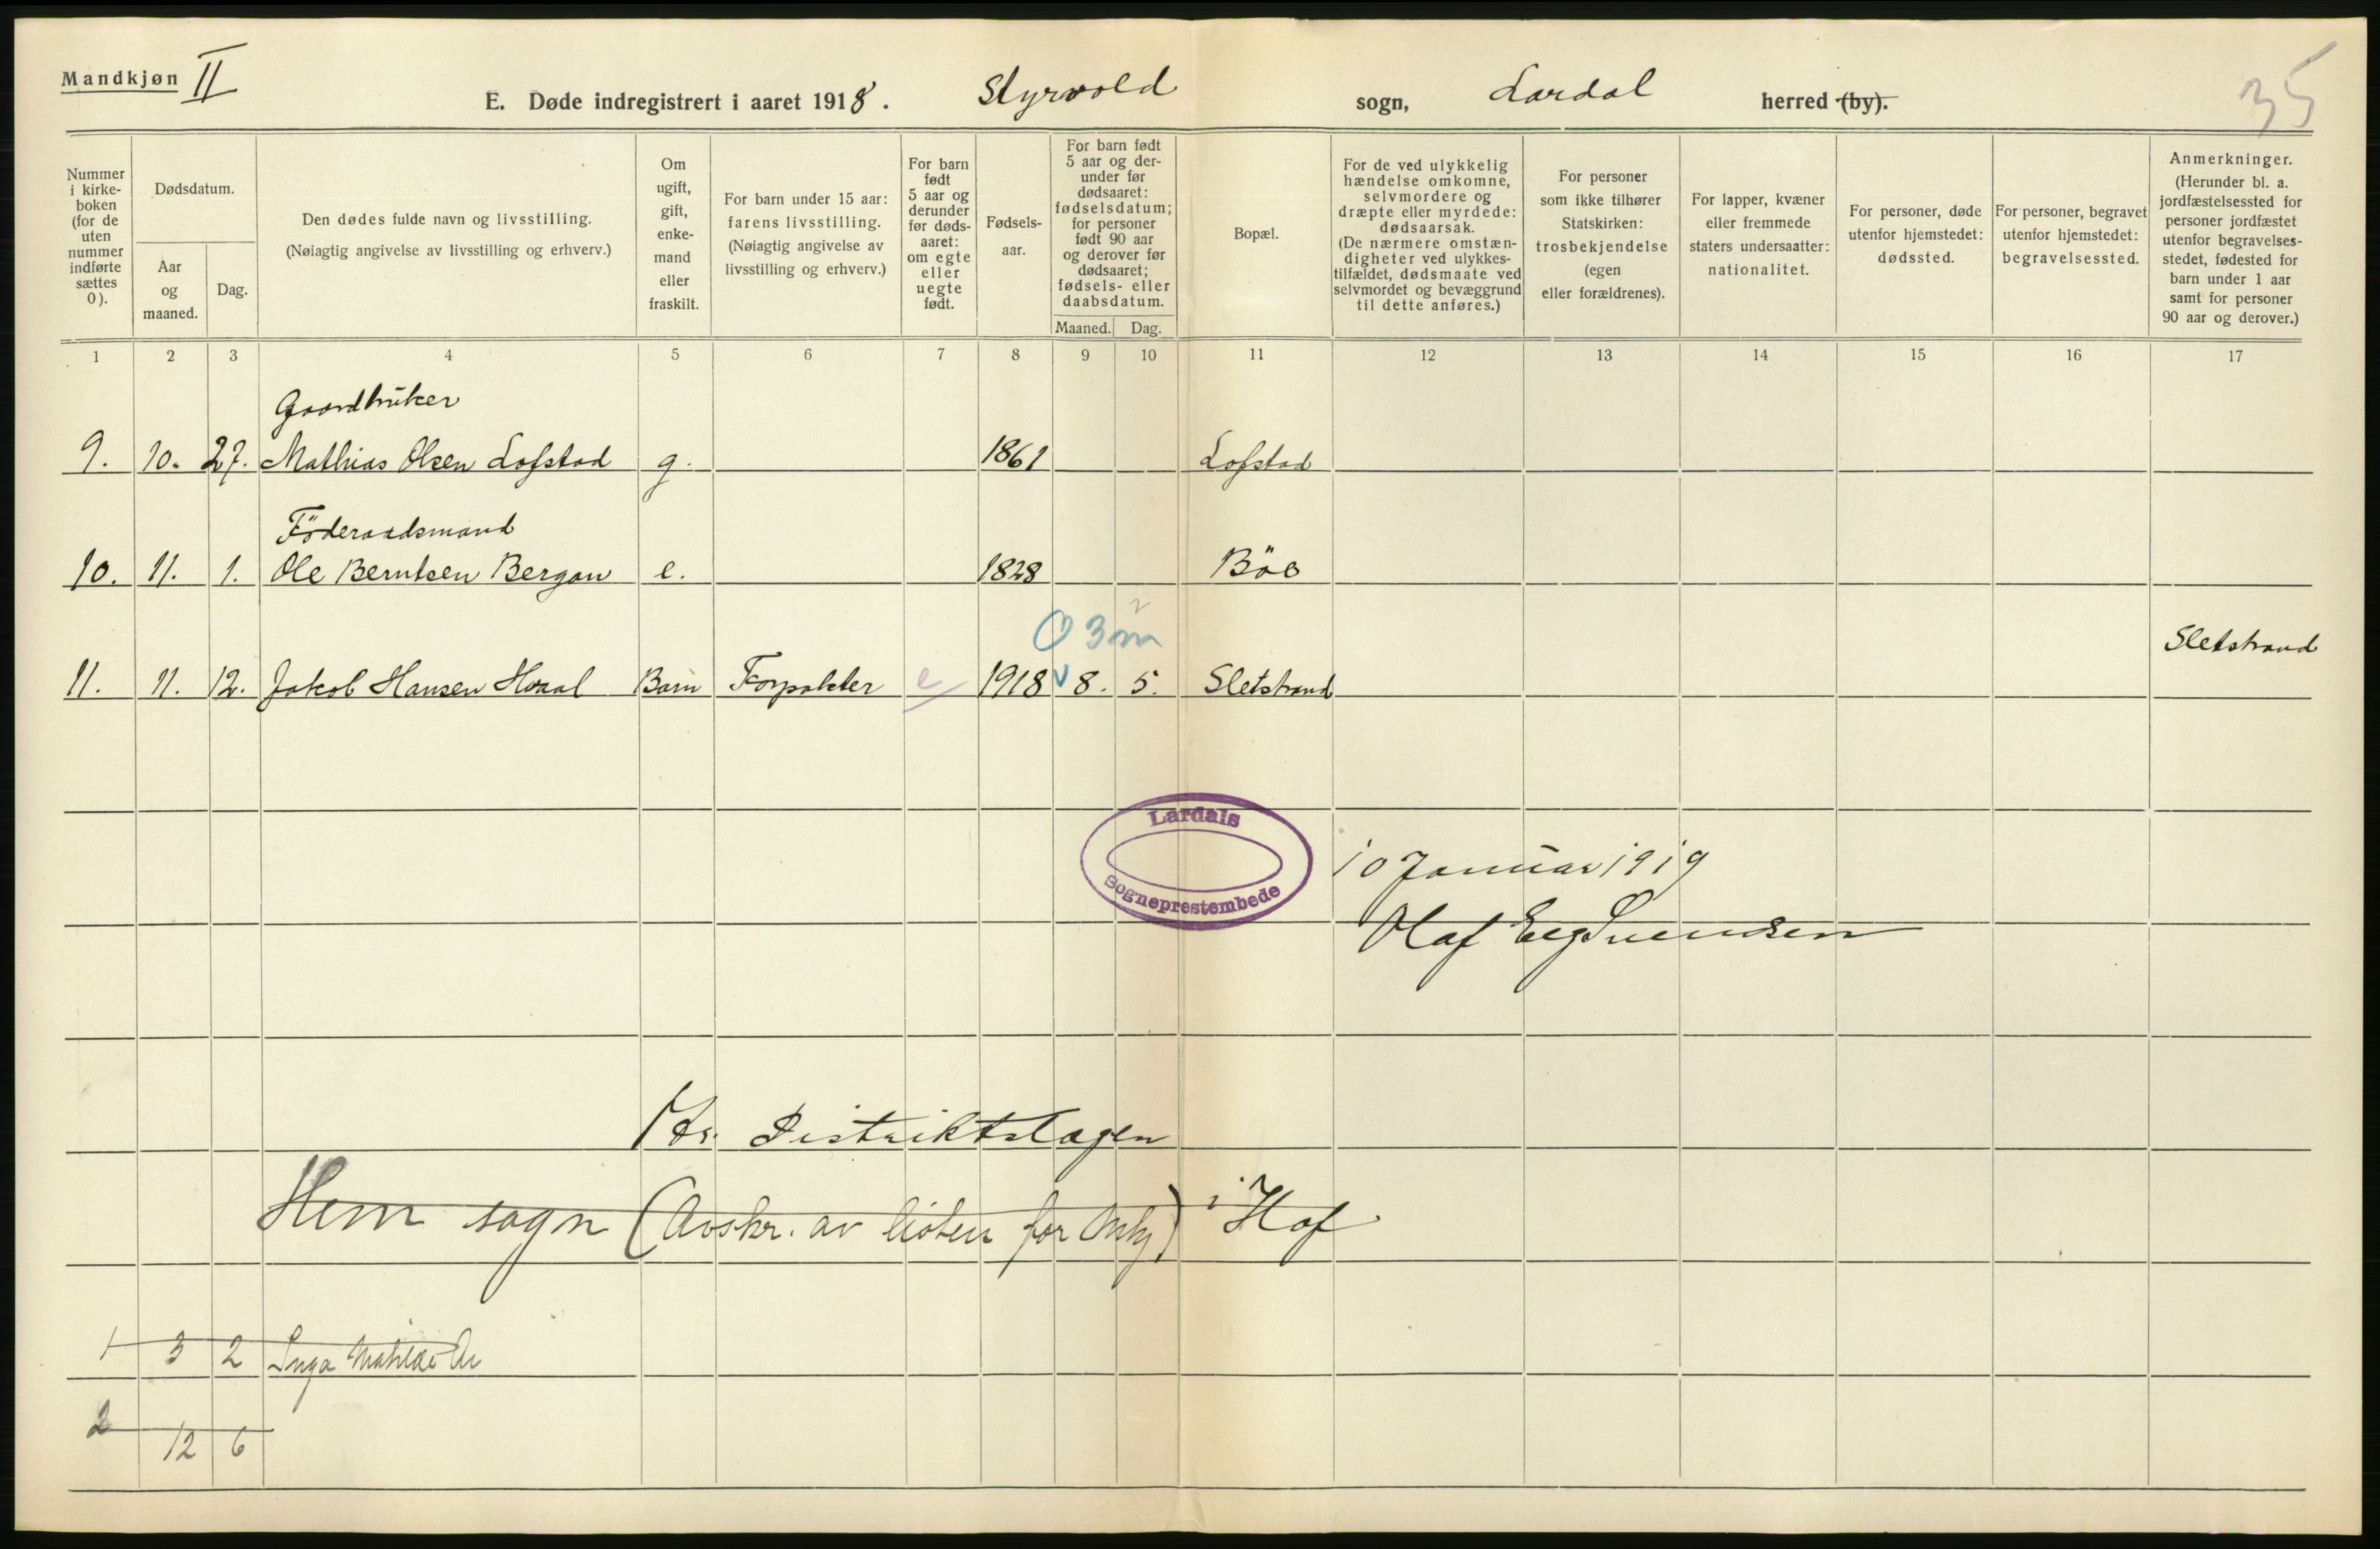 Mandkjøn II
E. Døde indregistrert i aaret 1918. Styrvold sogn, Lardal herred (by).
35
Nummer i kirke-boken (for de uten nummer indførte sættes 0).
Dødsdatum.
Aar og maaned.
Dag.
Den dødes fulde navn og livsstilling.
(Nøiagtig angivelse av livsstilling og erhverv.)
Om ugift, gift, enke-mand eller fraskilt.
For barn under 15 aar: farens livsstilling. (Nøiagtig angivelse av livsstilling og erhverv.)
For barn født 5 aar og derunder før døds-aaret: om egte eller uegte født.
Fødsels-aar.
For barn født 5 aar og der-under før dødsaaret: fødselsdatum; for personer født 90 aar og derover før dødsaaret; fødsels- eller daabsdatum.
Maaned. Dag.
Bopæl.
For de ved ulykkelig hændelse omkomne, selvmordere og dræpte eller myrdede: dødsaarsak. (De nærmere omstæn-digheter ved ulykkes-tilfældet, dødsmaate ved selvmordet og bevæggrund til dette anføres.)
For personer som ikke tilhører Statskirken: trosbekjendelse (egen eller forældrenes).
For lapper, kvæner eller fremmede staters undersaatter: nationalitet.
For personer, døde utenfor hjemstedet: dødssted.
For personer, begravet utenfor hjemstedet: begravelsessted.
Anmerkninger. (Herunder bl. a. jordfæstelsessted for personer jordfæstet utenfor begravelses-stedet, fødested for barn under 1 aar samt for personer 90 aar og derover.)
1 2 3 4 5 6 7 8 9 10 11 12 13 14 15 16 17
Gaardbruker
9. 10. 27. Mathias Olsen Lofstad g. 1861 Lofstad
Föderaadsmand
10. 11. 1. Ole Berntsen Bergan e. 1828 Böe
0 3 m
Sletstrand
11. 11. 12. Jakob Hansen Hvaal Barn Forpakter e 1918 8. 5. Sletstrand
Lardals
Sogneprestembede
10 Januar 1919
Olaf Eeg Svendsen
Hr. Distriktslægen
Hem sogn (Avskr. av listen for ) i Hof
1 3 2 Inga Mathilde
2 12 6